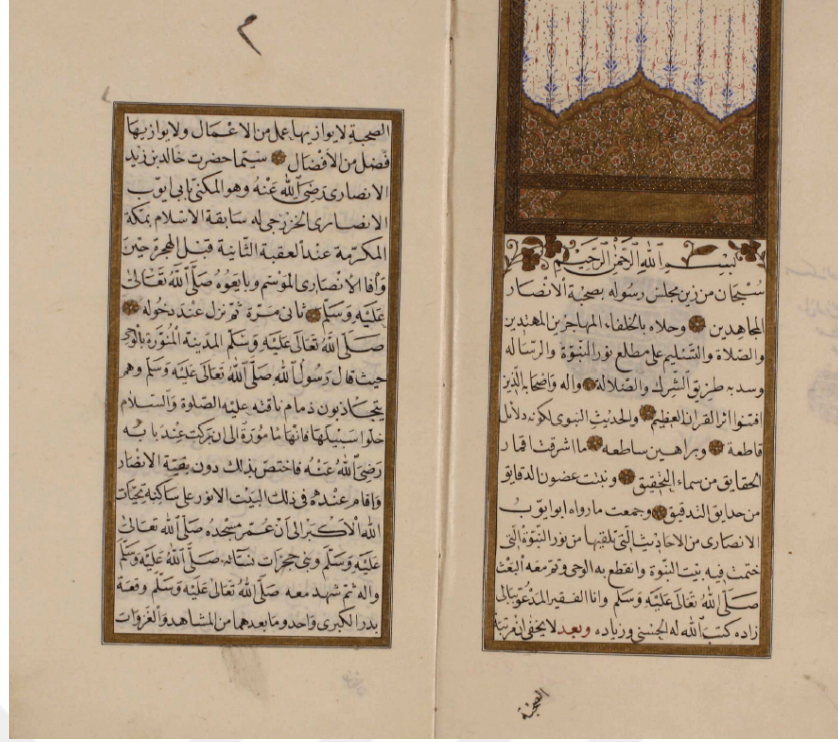 بسم الله الرحمن الرحيم
سبحان من زين مجلس رسوله بصحبة الانصار
المجاهدين وحلاه بالخلفاء المهاجرين المهتدين
والصلاة والتسليم على مطلع نور النبوة والرساله
وسد به طريق الشرك والضلالة واله واصحابه الذين
افتنوا اثر القران العظيم والحديث النبوى لكونه دلائل
قاطعة وبراهين ساطعه ما اشرقت اقمار
الحقايق من سماء التحقيق ونبتت غضون الدقايق
من حدايق التدقيق وجمعت ما رواه ابو ايوب
الانصارى من الاحاديث التى تلقيها من نور النبوة التى
ختمت فيه بيت النبوة وانقطع به الوحى وتم معه البعث
صلى الله تعالى عليه وسلم وانا الفقير المدعو ببالى
زاده كتب الله له الحسنى وزياده وبعد لا يخفى ان مرتبة
الصحبة
٢
الصحبة لا يوازيها عمل من الاعمال ولا يوازيها
فضل من الأفضال سيما حضرت خالد بن زيد
الانصارى رضى الله عنه وهو المكنى بابى ايوب
الانصارى الخزرجى له سابقة الاسلام بمكة
المكرمة عند العقبة الثانية قبل الهجرة حين
وافا الانصارى الموسم وبايعوه صلى الله تعالى
عليه وسلم ثانى مرة ثم نزل عند دخوله
صلى الله تعالى عليه وسلم المدينة المنورة بالوحى
حيث قال رسول الله صلى الله تعالى عليه وسلم وهم
يتجاذبون ذمام ناقته عليه الصلوة والسلام
خلوا سبيلها فانها مامورة الى ان بركت عند بابه
رضى الله عنه فاختص بذلك دون بقية الانصار
واقام عنده فى ذلك البيت الانور على ساكنه تحيات
الله الاكبر الى ان عمر مسجده صلى الله تعالى
عليه وسلم وبنى حجرات نسائه صلى الله عليه وسلم
واله ثم شهد معه صلى الله تعالى عليه وسلم وقعة
بدر الكبرى واحد وما بعدهما من المشاهد والغزوات